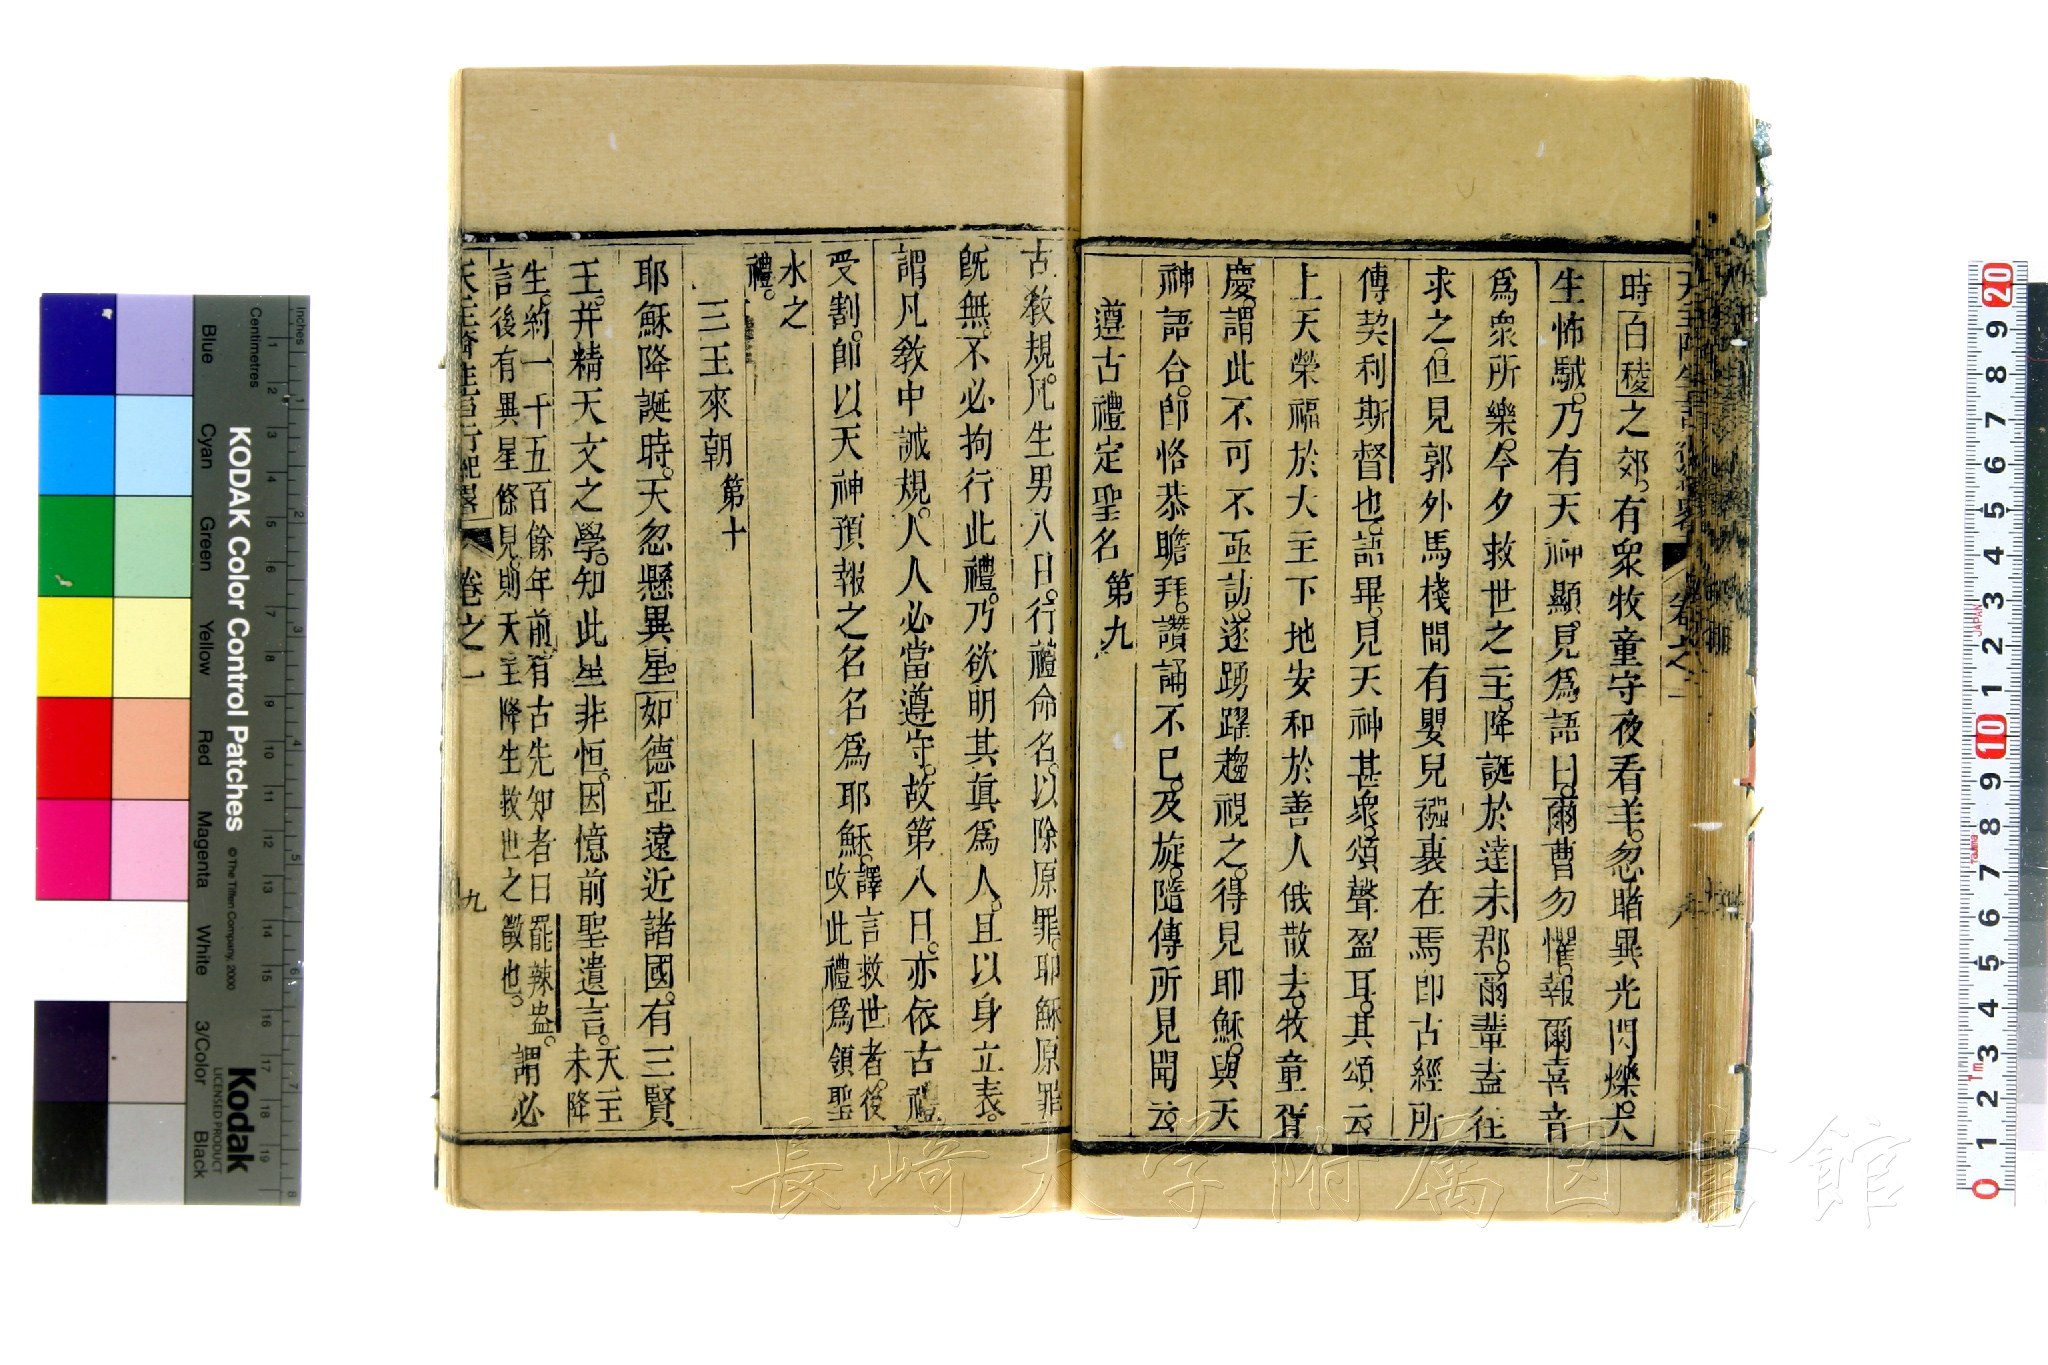 時白稜之郊。有衆牧童守夜看羊。忽睹異光閃爍。大
生怖駴。乃有天神顯見爲語曰。爾曹勿懼。報爾喜音
爲衆所樂。今夕救世之主。降誕於達未郡。爾輩盍往
求之。但見郭外馬棧間有嬰兒襁裹在焉即古經所
傳契利斯督也。語畢。見天神甚衆。頌聲盈耳。其頌云
上天榮福於大主下地安和於善人俄散去。牧童胥
慶。謂此不可不亟訪。遂踴躍趨視之。得見耶穌。與天
神語合。卽恪恭瞻拜。讚誦不已。及旋。隨傳所見聞云。
遵古禮定聖名 第九
古敎規。凡生男八日。行禮命名。以除原罪。耶穌原罪
旣無。不必拘行此禮。乃欲明其眞爲人。且以身立表。
謂凡敎中誡規。人人必當遵守。故第八日。亦依古禮
受割。卽以天神預報之名名爲耶穌。譯言救世者。後
改此禮爲領聖
水之
禮。
三王來朝 第十
耶穌降誕時。天忽懸異星。如德亞遠近諸國。有三賢
王。幷精天文之學。知此星非恒。因憶前聖遺言。天主
未降
生。約一千五百餘年前。有古先知者曰罷辣盎。謂必
言後有異星條見。則天主降生救世之徵也。
卷之一
九
KODAK Color Control Patches
© The Tiffen Company, 2000
Kodak
LICENSED PRODUCT
Inches
Centimetres
Blue
Cyan
Green
Yellow
Red
Magenta
White
3/Color
Black
長崎大学附属図書館